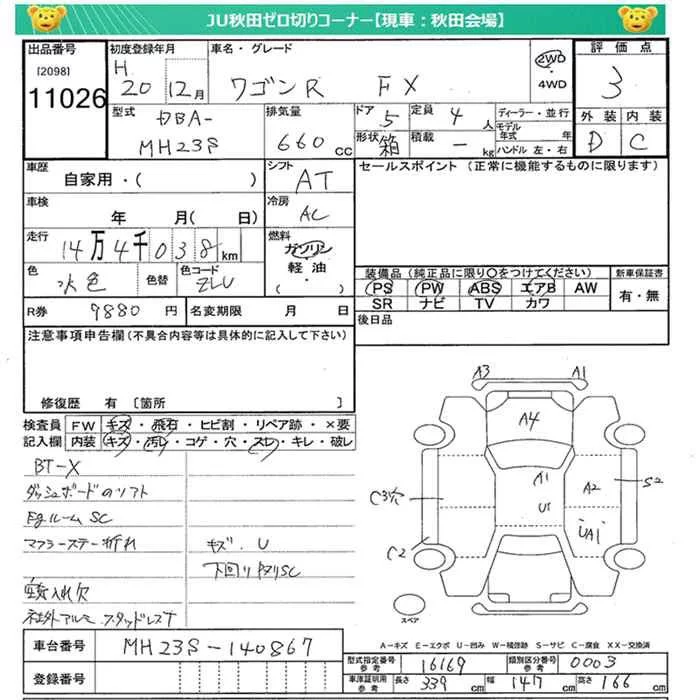 JU秋田ゼロ切りコーナー【現車：秋田会場】
出品番号 初度登録年月 車名・グレード 2WD 評価点
[2098] H 20 12月 ワゴンR FX ・4WD 3
11026 型式 排気量 ドア 定員 ディーラー・並行 外装 内装
DBA- 5 4人 モデル年式 年
MH23S 660cc 形状 箱 積載 ー kg ハンドル 左・右 D C
車歴 シフト セールスポイント（正常に機能するものに限ります）
自家用・( ) AT
車検 冷房
年 月( 日) AC
走行 燃料
14万4千038km ガソリン
色 色替 色コード 軽油・ 装備品（純正品に限り○をつけてください） 新車保証書
水色 ZLU ( ) PS PW ABS エアB AW 有・無
SR ナビ TV カワ
R券 9880円 名変期限 月 日 後日品
注意事項申告欄（不具合内容等は具体的に記入して下さい）
修復歴 有 〔箇所 〕
検査員 FW キズ・飛石・ヒビ割・リペア跡・×要
記入欄 内装 キズ・汚レ・コゲ・穴・スレ・キレ・破レ
A3 A1
A4
BT-X
ダッシュボードのソフト A1 A2 S2
C3穴 U1
Egルーム SC
マフラーステー折れ キズ.U UA1
C2
下回りタリSC
社外アルミ スタッドレス
スペア
A-キズ E-エクボ U-凹み W-補修跡 S-サビ C-腐食 XX-交換済
車台番号 MH23S-140867
型式指定番号参考 16169 類別区分番号参考 0003
登録番号 車庫証明用参考 長さ 339cm 幅 147cm 高さ 166cm